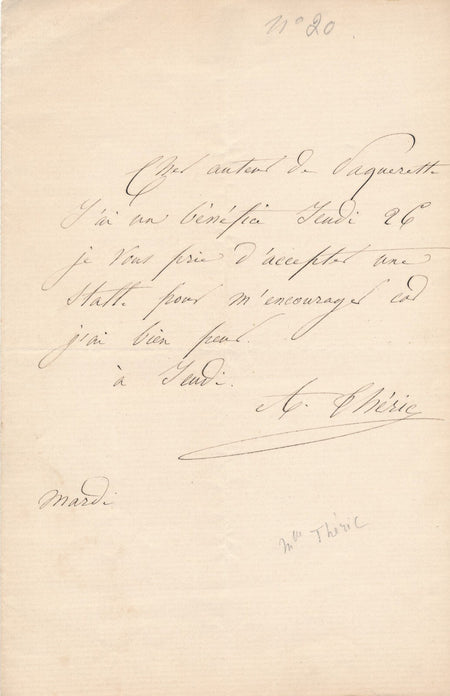 n° 20
Cher auteur de Paquerette
J'ai un bénéfice Jeudi 26
je vous prie d'accepter une
stalle pour m'encourager car
j'ai bien peur.
à Jeudi.
A. Théric
Mardi
Mlle Théric